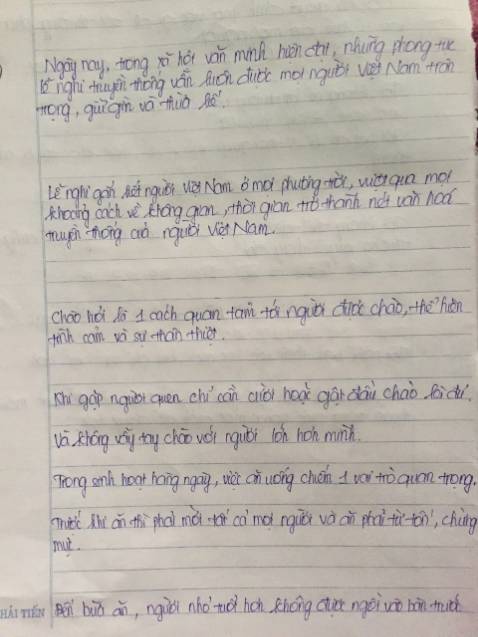 Ngày nay, trong xã hội văn minh hiện đại, những phong tục
lễ nghi truyền thống vẫn luôn được mọi người Việt Nam trân
trọng, giữ gìn và thừa kế.
Lễ nghi gắn kết người Việt Nam ở mọi phương trời, vượt qua mọi
khoảng cách về không gian, thời gian trở thành nét văn hoá
truyền thống của người Việt Nam.
Chào hỏi là 1 cách quan tâm tới người được chào, thể hiện
tình cảm và sự thân thiết.
Khi gặp người quen chỉ cần cười hoặc gật đầu chào là đủ.
Và không vẫy tay chào với người lớn hơn mình.
Trong sinh hoạt hàng ngày, việc ăn uống chiếm 1 vai trò quan trọng.
Trước khi ăn thì phải mời tất cả mọi người và ăn phải từ tốn, chừng
mực.
HẢI TIẾN bữa ăn, người nhỏ tuổi hơn không được ngồi vào bàn trước